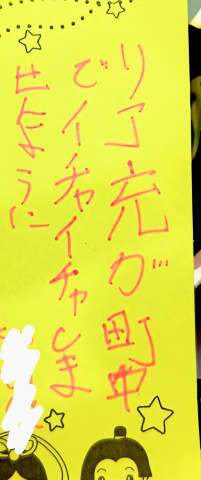 リア充が町中
でイチャイチャしま
せんように